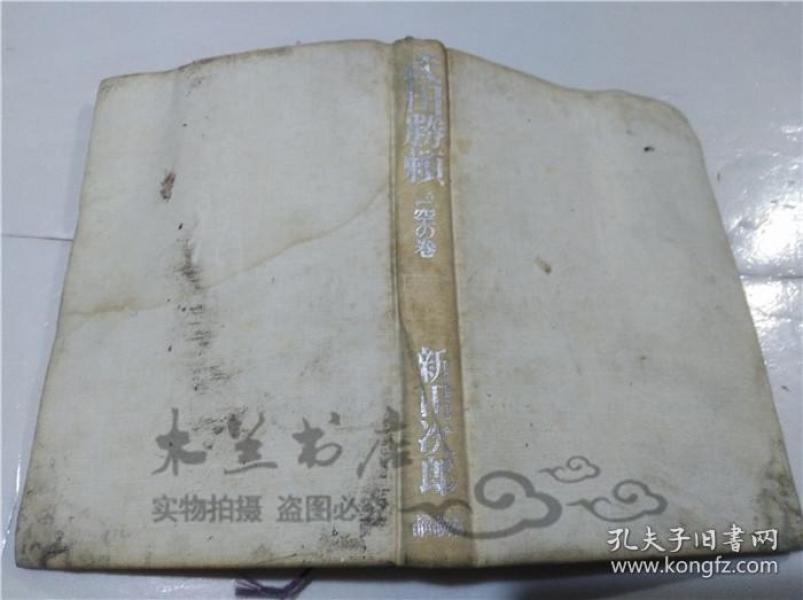 武田勝頼
三 空の巻
新田次郎
講談社
木兰书店
实物拍摄 盗图必究
孔夫子旧书网
www.kongfz.com